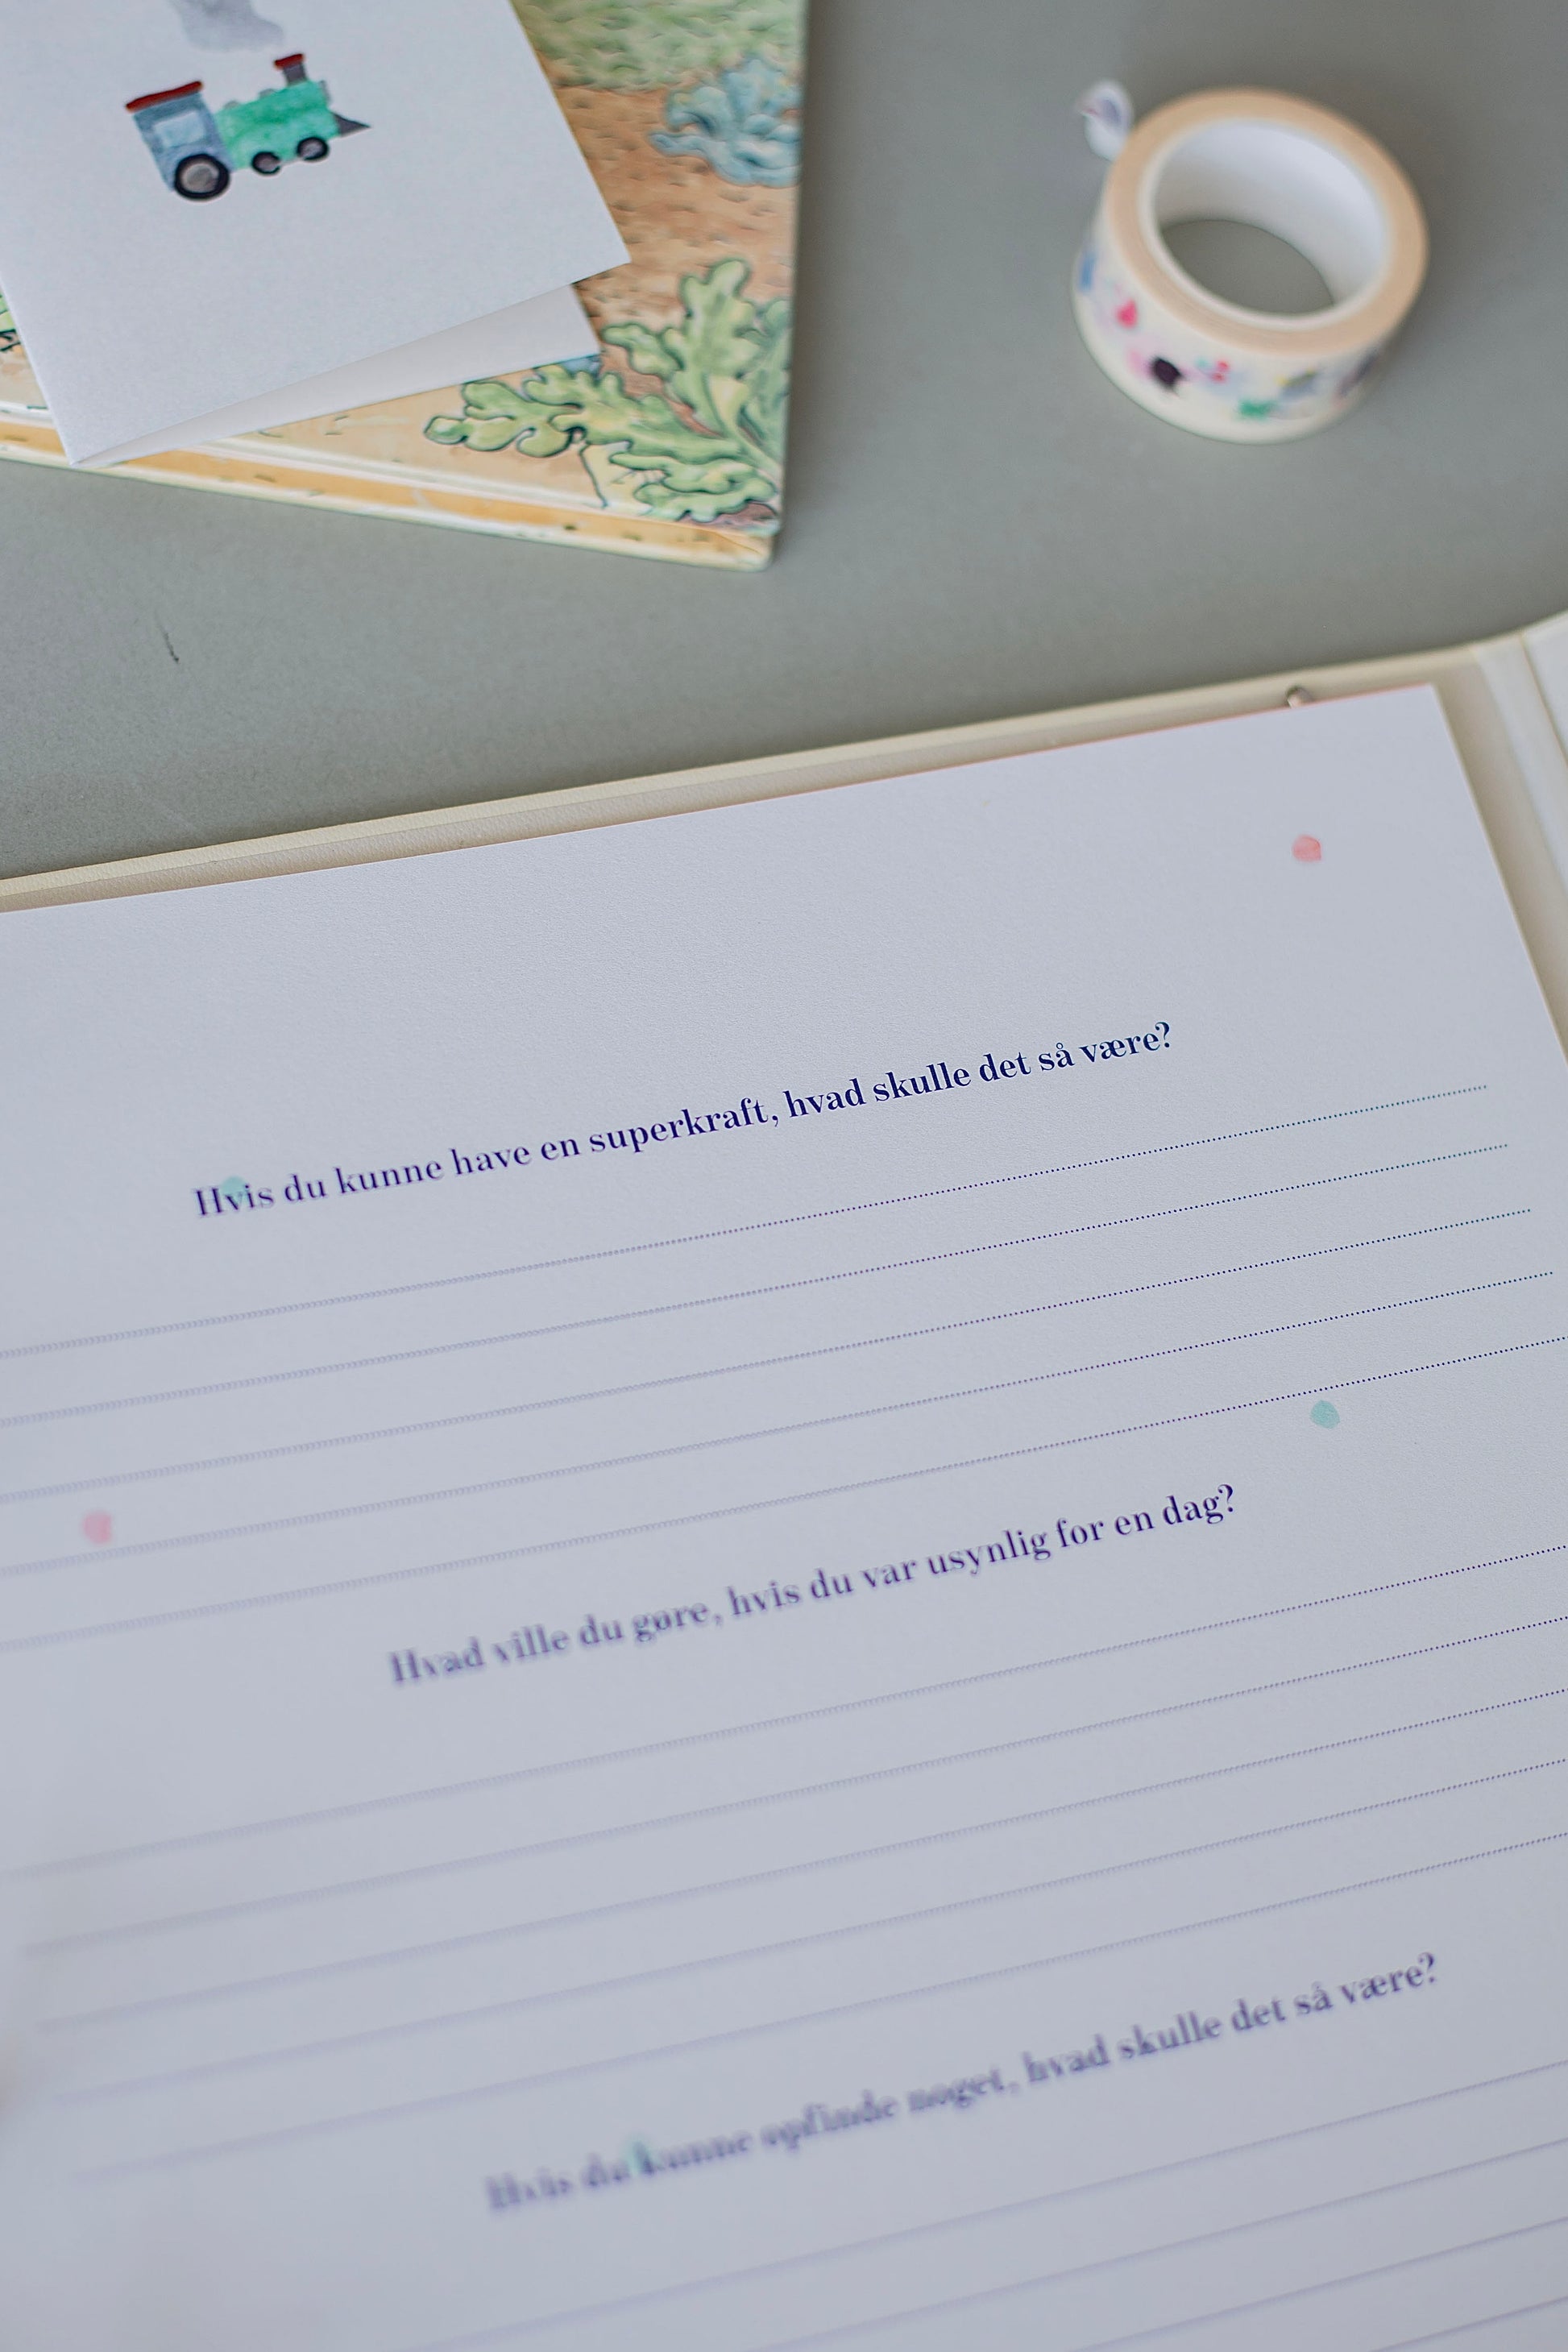 Hvis du kunne have en superkraft, hvad skulle det så være?
Hvad ville du gøre, hvis du var usynlig for en dag?
Hvis du kunne opfinde noget, hvad skulle det så være?